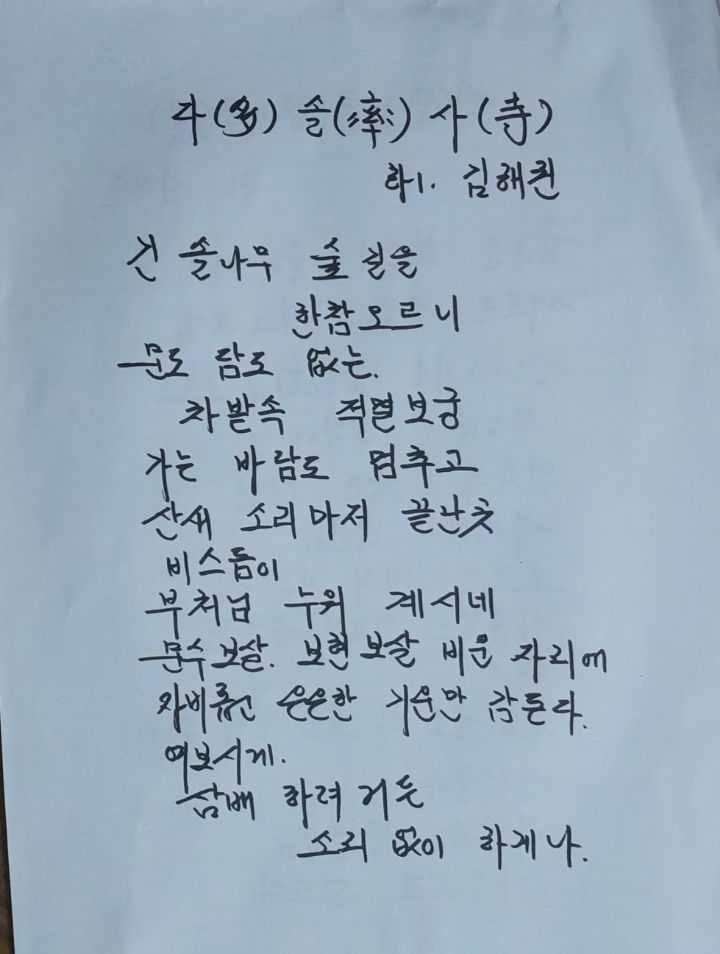 다(多) 솔(率) 사(寺)
하1. 김해권
긴 솔나무 숲 길을
한참오르니
문도 담도 없는.
차밭속 적멸보궁
가는 바람도 멈추고
산새 소리마저 끝난 곳
비스듬이
부처님 누워 계시네
문수보살. 보현보살 비운 자리에
자비로운 은은한 기운만 감돈다.
여보시게.
삼배 하려거든
소리 없이 하게나.